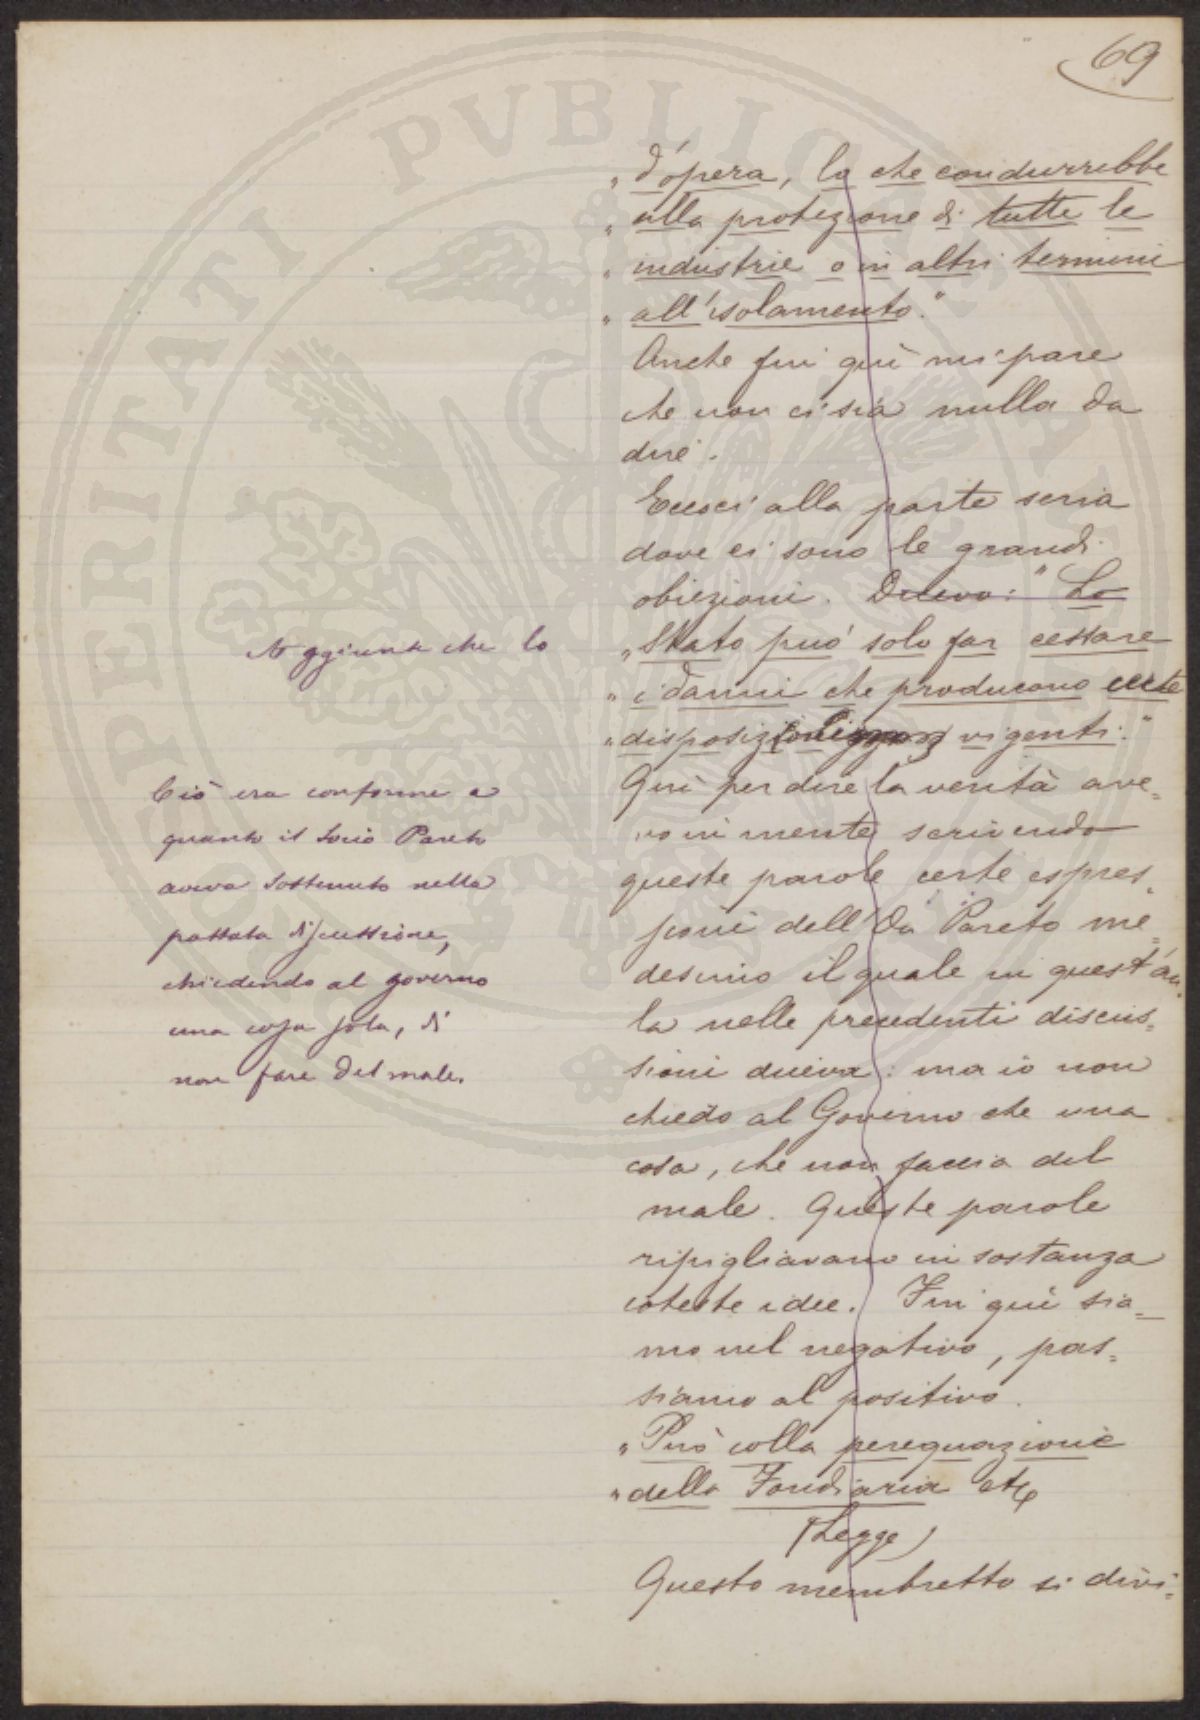 69
„ d'opera, lo che condurrebbe
„ alla protezione di tutte le
„ industrie o in altri termini
„ all'isolamento."
Anche fin quì mi pare
che non ci sia nulla da
dire.
Eccoci alla parte seria
dove ci sono le grandi
obiezioni. Dicevo: " Lo
Aggiunse che lo
„ Stato può solo far cessare
„ i danni che producono certe
„ disposizioni vigenti."
Quì per dire la verità ave=
vo in mente scrivendo
queste parole certe espres=
sioni dell' Pareto me=
desimo il quale in quest'au=
la nelle precedenti discus=
sioni diceva: ma io non
chiedo al Governo che una
cosa, che non faccia del
male. Queste parole
ripigliavano in sostanza
coteste idee. Fin quì sia=
mo nel negativo, pas=
siamo al positivo.
„ Può colla perequazione
„ della Fondiaria etc
(Legge)
Questo membretto si divi=
Ciò era conforme a
quanto il Socio Pareto
aveva sostenuto nella
passata discussione,
chiedendo al governo
una cosa sola, di
non fare del male.
PVBLIC